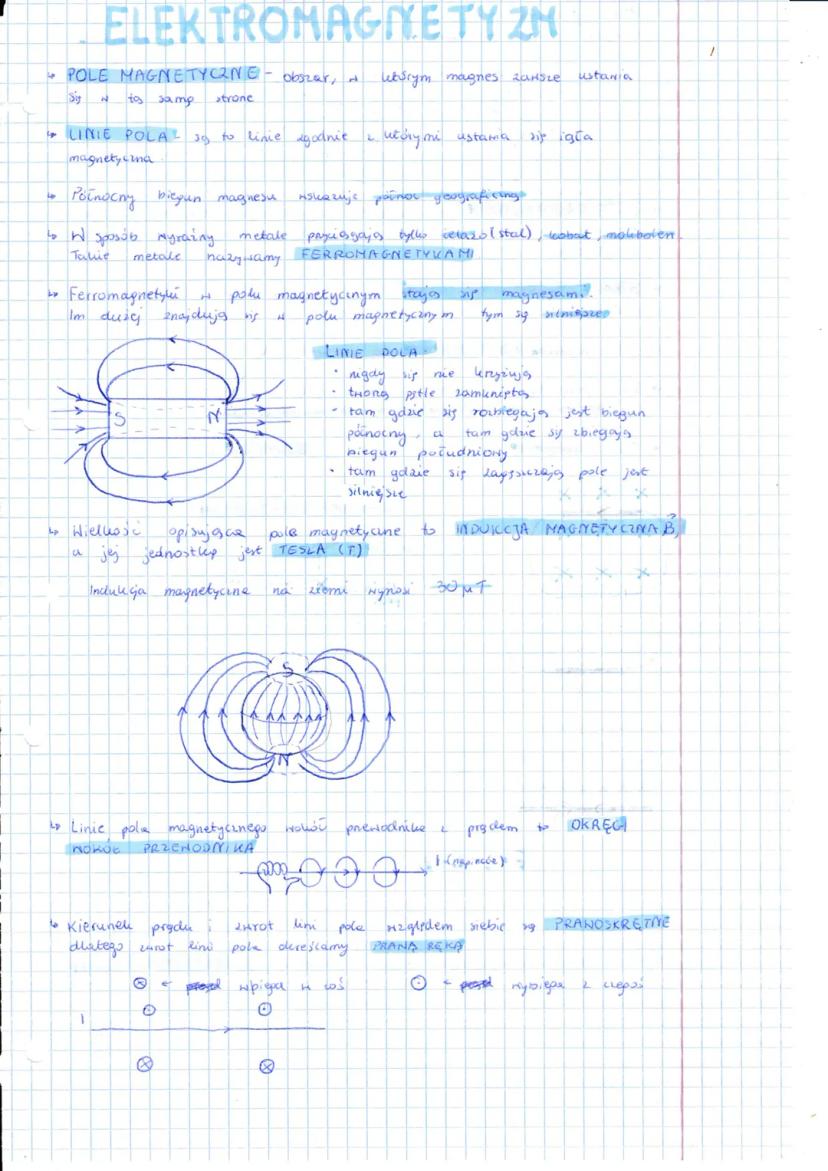 ELEKTROMAGNETYZM
1
↳ POLE MAGNETYCZNE - obszar, w którym magnes zawsze ustawia
się w tą samą stronę
↳ LINIE POLA - są to linie zgodnie z którymi ustawia się igła
magnetyczna
↳ Północny biegun magnesu wskazuje północ geograficzną
↳ W sposób wyraźny metale przyciągają tylko żelazo (stal), kobalt, molibden.
Takie metale nazywamy FERROMAGNETYKAMI
↳ Ferromagnetyki w polu magnetycznym stają się magnesami.
Im dużej znajdują się w polu magnetycznym tym są silniejsze
LINIE POLA
• nigdy się nie krzyżują
• tworzą pętle zamkniętą
• tam gdzie się rozbiegają jest biegun
północny, a tam gdzie się zbiegają
biegun południowy
• tam gdzie się zagęszczają pole jest
silniejsze
S N
↳ Wielkość opisująca pole magnetyczne to INDUKCJA MAGNETYCZNA B,
a jej jednostką jest TESLA (T)
Indukcja magnetyczna na ziemi wynosi 30 μT
S
N
↳ Linie pola magnetycznego wokół przewodnika z prądem to OKRĘGI
WOKÓŁ PRZEWODNIKA
I
↳ Kierunek prądu i zwrot lini pola względem siebie są PRAWOSKRĘTNE
dlatego zwrot lini pola określamy PRAWĄ RĘKĄ
⊗ ← wbiega w coś ⊙ ← wybiega z czegoś
⊙ ⊙
I
⊗ ⊗